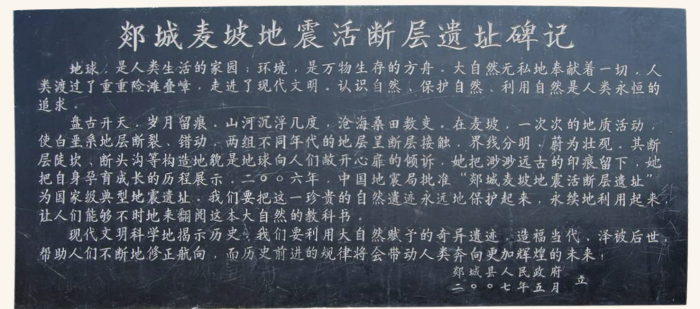 郯城麦坡地震活断层遗址碑记
地球，是人类生活的家园；环境，是万物生存的方舟。大自然无私地奉献着一切，人
类渡过了重重险滩叠嶂，走进了现代文明。认识自然、保护自然、利用自然是人类永恒的
追求。
盘古开天，岁月留痕。山河沉浮几度，沧海桑田数变。在麦坡，一次次的地质活动，
使白垩系地层断裂、错动，两组不同年代的地层呈断层接触，界线分明，蔚为壮观。其断
层陡坎、断头沟等构造地貌是地球向人们敞开心扉的倾诉，她把渺渺远古的印痕留下，她
把自身孕育成长的历程展示。二〇〇六年，中国地震局批准“郯城麦坡地震活断层遗址”
为国家级典型地震遗址。我们要把这一珍贵的自然遗迹永远地保护起来，永续地利用起来，
让人们能够不时地来翻阅这本大自然的教科书。
现代文明科学地揭示历史，我们要利用大自然赋予的奇异遗迹，造福当代，泽被后世，
帮助人们不断地修正航向，而历史前进的规律将会带动人类奔向更加辉煌的未来！
郯城县人民政府
二〇〇七年五月 立